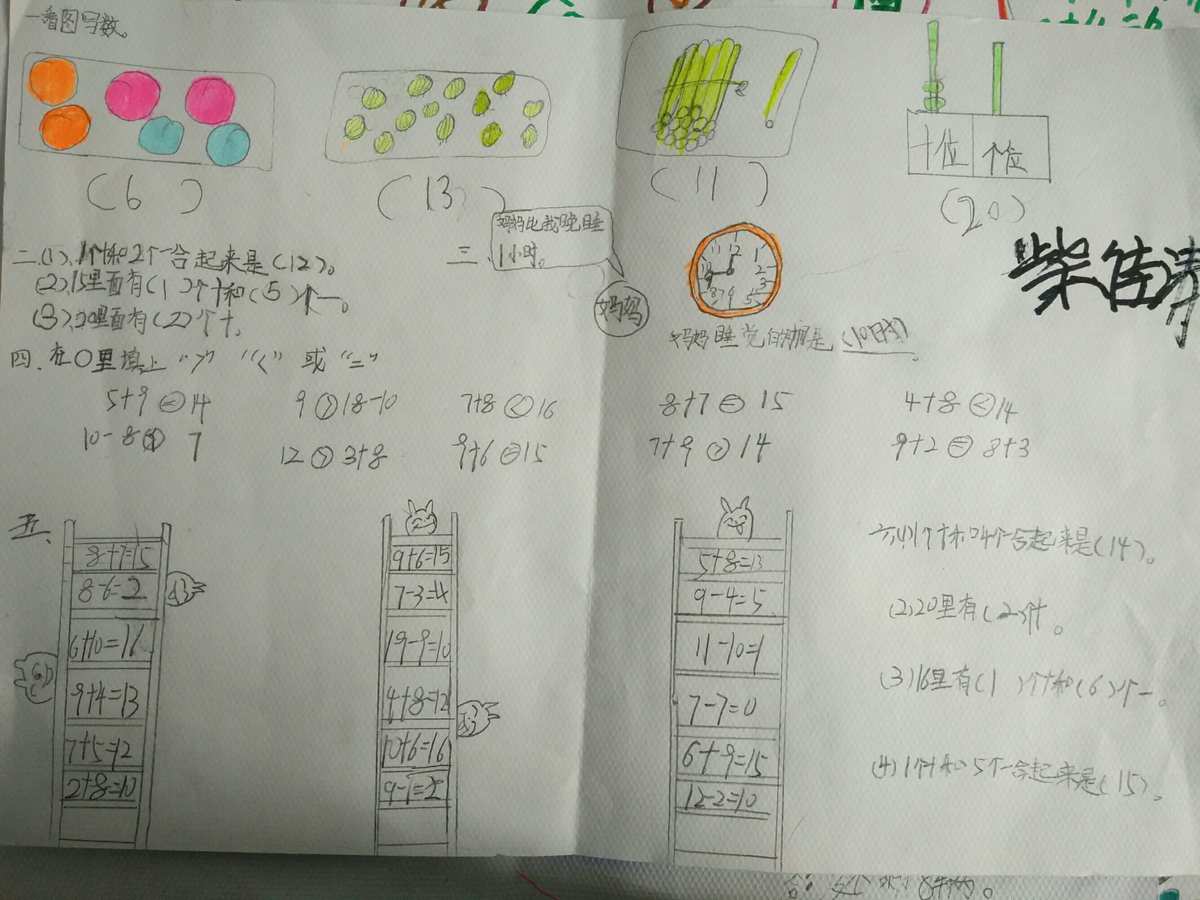 一看图写数。
(6) (13) (11) (20)
十位 个位
二、(1)、1个十和2个一合起来是(12)。
(2)、15里面有(1)个十和(5)个一。
(3)、20里面有(2)个十。
三、
妈妈比我晚睡
1小时。
妈妈
妈妈睡觉的时间是(10时)
柴佳
四、在○里填上 “>” “<” 或 “=”
5+9=14 9>18-10 7+8<16 8+7=15 4+8<14
10-8 7 12>3+8 9+6=15 7+9>14 9+2=8+3
五、
8+7=15
8-6=2
6+10=16
9+4=13
7+5=12
2+8=10
9+6=15
7-3=4
19-9=10
4+8=12
10+6=16
9-1=
5+8=13
9-4=5
11-10=1
7-7=0
6+9=15
12-2=10
六、(1)1个十和4个一合起来是(14)。
(2)20里有(2)个十。
(3)16里有(1)个十和(6)个一。
(4)1个十和5个一合起来是(15)。